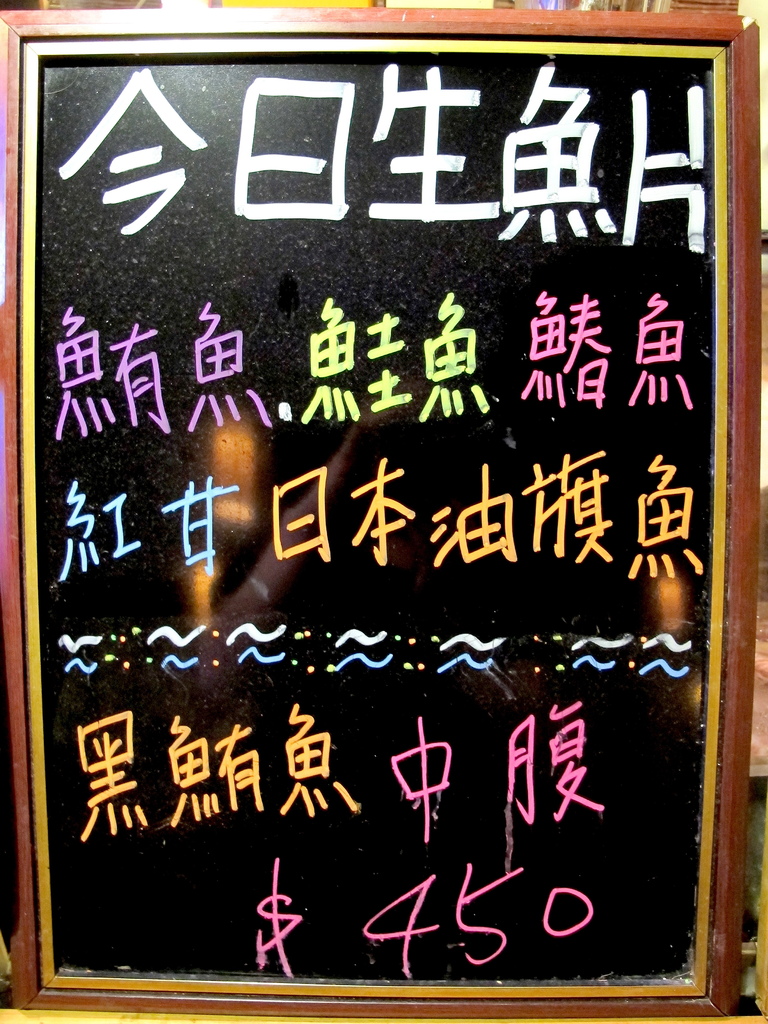 今日生魚片
鮪魚.鮭魚 鰆魚
紅甘 日本油旗魚
黑鮪魚 中腹
$450